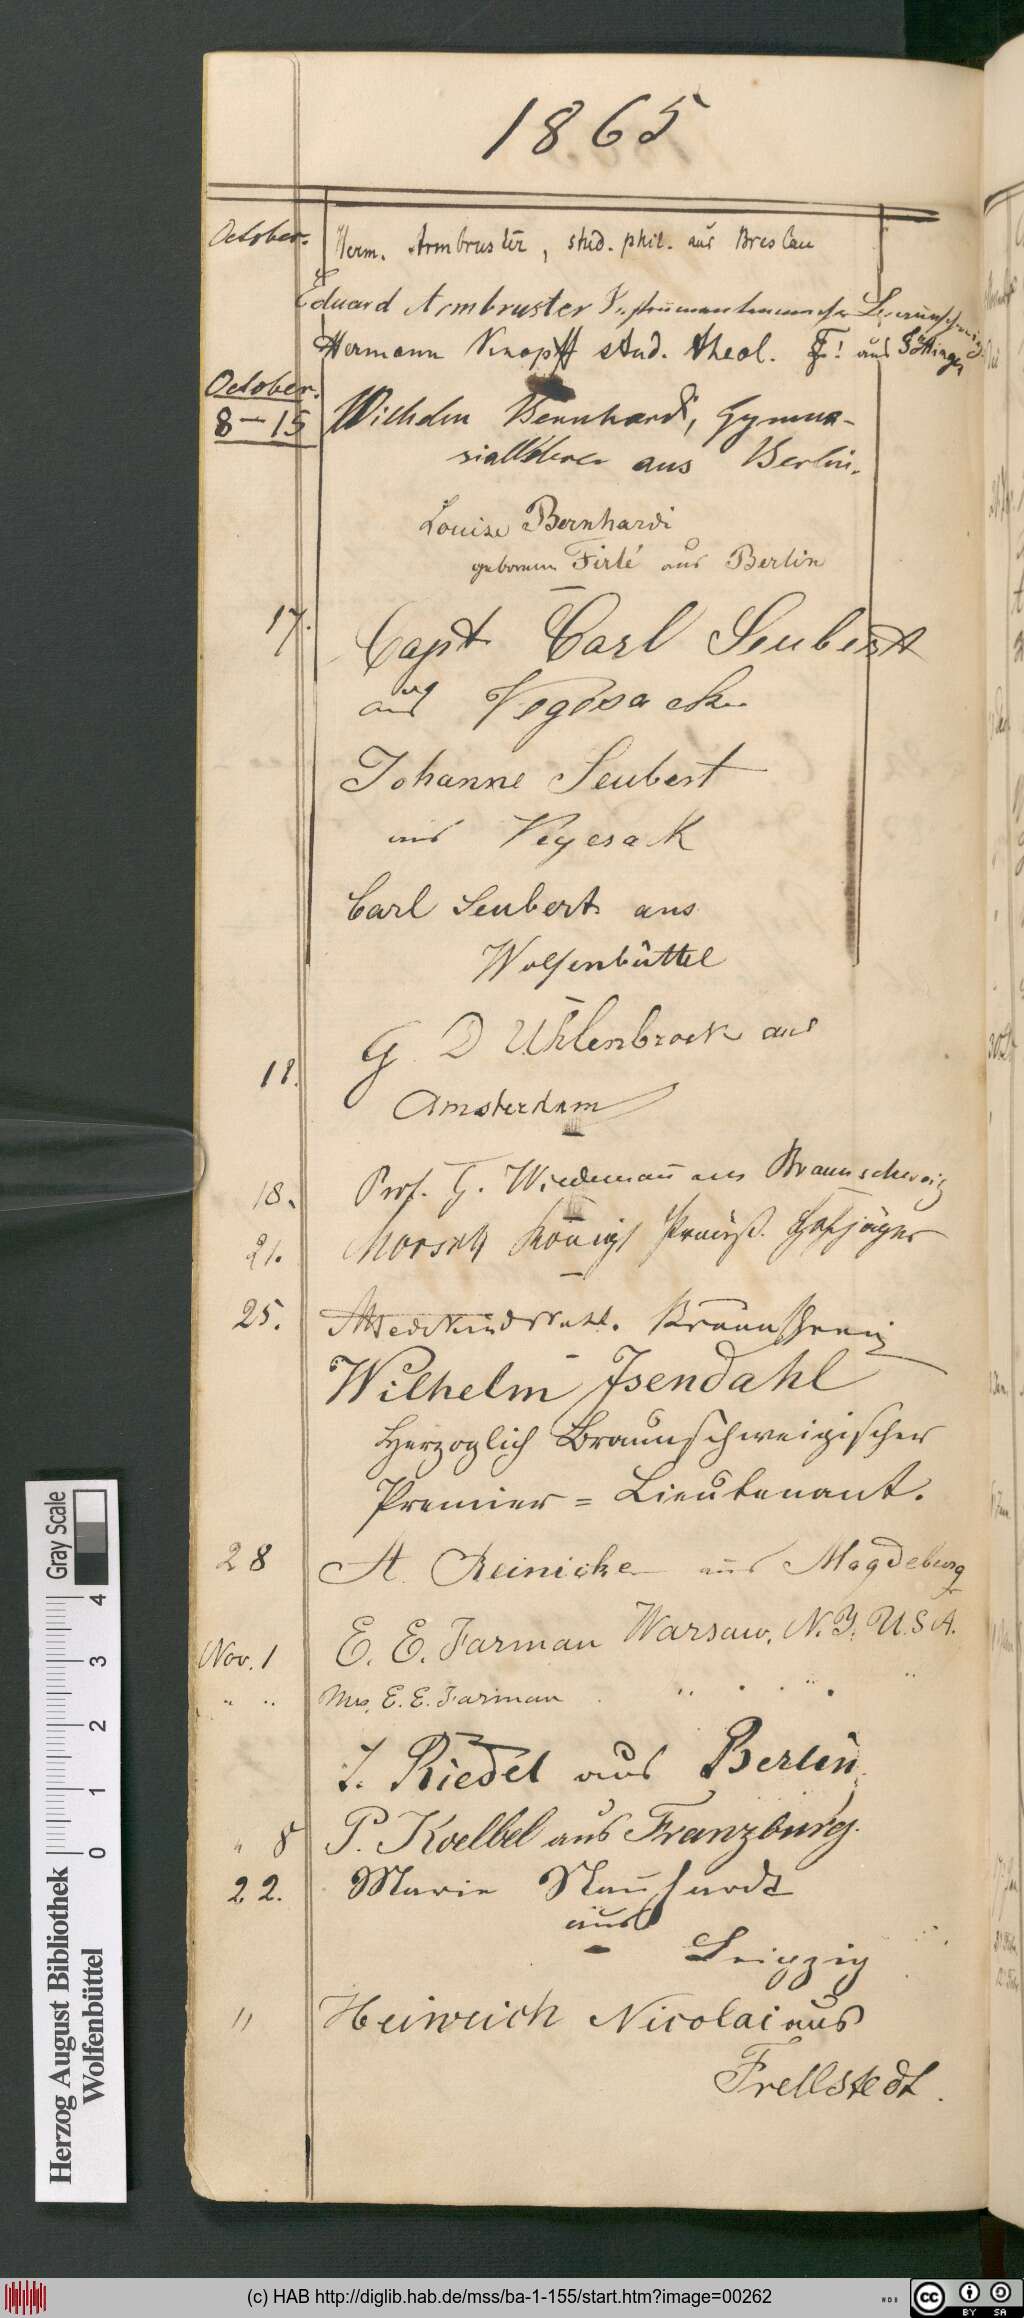 1865
October. Herm. Armbruster, stud. phil. aus Breslau
Eduard Armbruster Instrumentenmacher Braunschweig
Hermann Knopff stud. theol. ! aus Göttingen
October.
8–15 Wilhelm Bernhardi, Gymna-
siallehrer aus Berlin.
Louise Bernhardi
geborene Firlé aus Berlin
17. Capt Carl Seubert
aus Vegesack
Johanne Seubert
aus Vegesack
Carl Seubert aus
Wolfenbüttel
18. G D Uhlenbroek aus
Amsterdam
18. Prof. G. Wiedemann aus Braunschweig
21. Königl Preuß. Hofjäger
25. Braunschweig
Wilhelm Isendahl
Herzoglich Braunschweigischer
Premier = Lieutenant.
28 A. Reinicke aus Magdeburg
Nov. 1 E. E. Farman Warsaw, N.Y. U.S.A.
" " Mrs. E. E. Farman " " "
J. Riedel aus Berlin
" 8 P. Koelbel aus Franzburg.
22. Marie Nauhardt
aus
Leipzig
" Heinrich Nicolai aus
Frellstedt.
Gray Scale
0 1 2 3 4
Herzog August Bibliothek
Wolfenbüttel
(c) HAB http://diglib.hab.de/mss/ba-1-155/start.htm?image=00262
cc BY SA